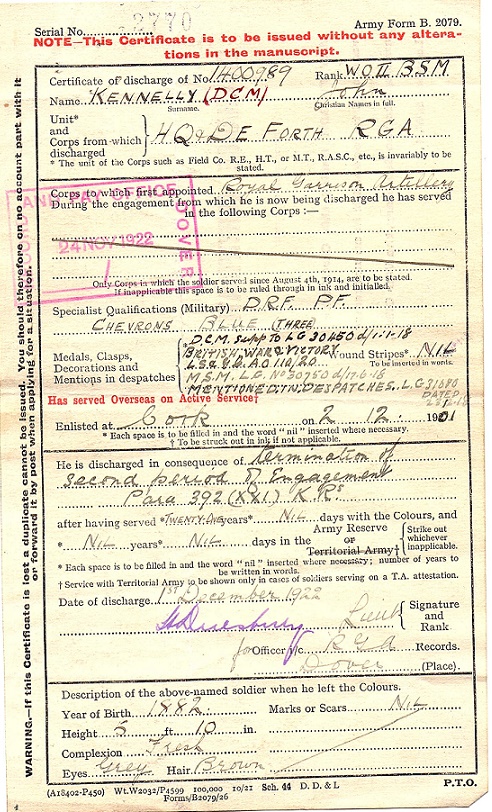 Serial No. 2770
Army Form B. 2079.
NOTE—This Certificate is to be issued without any altera-
tions in the manuscript.
Certificate of discharge of No. 1400989 Rank W.O.II B.S.M
Name KENNELLY (DCM) John
Surname. Christian Names in full.
Unit*
and
Corps from which
discharged
HQrs DE FORTH RGA
* The unit of the Corps such as Field Co. R.E., H.T., or M.T., R.A.S.C., etc., is invariably to be
stated.
Corps to which first appointed Royal Garrison Artillery
During the engagement from which he is now being discharged he has served
in the following Corps :—
PAY OFFICE
DOVER
24 NOV 1922
Only Corps in which the soldier served since August 4th, 1914, are to be stated.
If inapplicable this space is to be ruled through in ink and initialled.
Specialist Qualifications (Military) D.R.F. P.F.
CHEVRONS BLUE (THREE)
Medals, Clasps,
Decorations and
Mentions in despatches
D.C.M. Supp TO LG 30450 d/1-1-18
BRITISH WAR & VICTORY
L.S. & G.C. A.O 110/20
M.S.M. L.G. No 30750 d/17-6-18
MENTIONED IN DESPATCHES. L.G 31080
DATED
Wound Stripes* NIL
To be inserted in words.
Has served Overseas on Active Service†
Enlisted at Cork on 2 12 1901
* Each space is to be filled in and the word "nil" inserted where necessary.
† To be struck out in ink if not applicable.
He is discharged in consequence of termination of
second period of Engagement
Para 392 (XXI) K.Rs
after having served *TWENTY ONE years* NIL days with the Colours, and
* NIL years* NIL days in the Army Reserve or Territorial Army† Strike out whichever inapplicable.
* Each space is to be filled in and the word "nil" inserted where necessary; number of years to
be written in words.
† Service with Territorial Army to be shown only in cases of soldiers serving on a T.A. attestation.
Date of discharge 1ST December 1922
Lieut Signature and Rank
for Officer i/c RGA Records.
Dover (Place).
Description of the above-named soldier when he left the Colours.
Year of Birth 1882 Marks or Scars NIL
Height 5 ft 10 in.
Complexion Fresh
Eyes Grey Hair Brown
(A18402-P450) Wt.W2032/P4599 100,000 10/21 Sch. 44 D. D. & L
Forms/B2079/26
P.T.O.
WARNING.—If this Certificate is lost a duplicate cannot be issued. You should therefore on no account part with it
or forward it by post when applying for a situation.